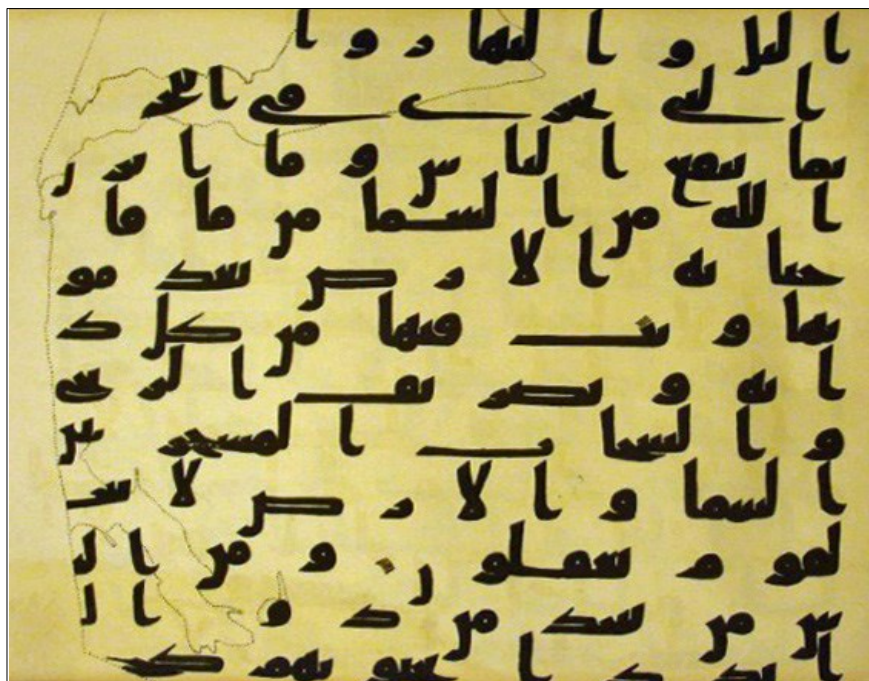 اليل و النهار و ا
التى تجرى فى البحر
بما ينفع الناس و ما انز
الله من السما من ما فا
حيا به الارض بعد مو
تها و بث فيها من كل د
ابه و تصريف الريح
و السحاب المسخر بين
السما و الارض لايت
لقوم يعقلون و من النا
س من يتخذ من دون ال
اندادا يحبونهم كحب